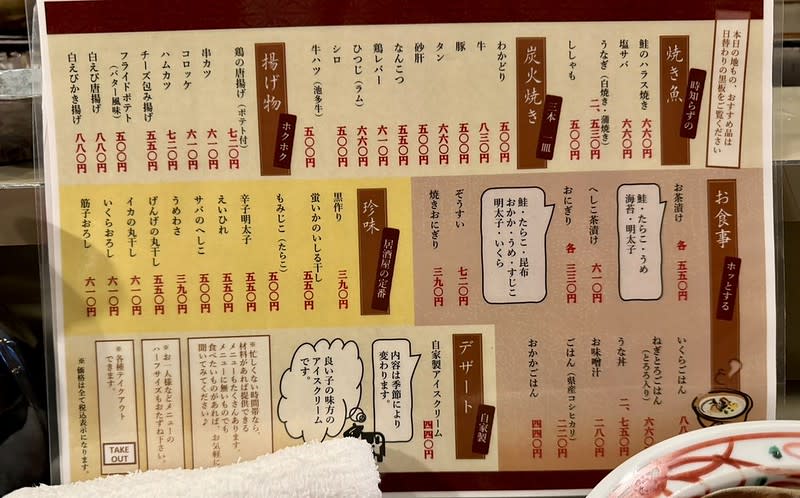 本日の地もの、おすすめ品は
日替わりの黒板をご覧ください
焼き魚
時知らずの
鮭のハラス焼き 六六〇円
塩サバ 六六〇円
うなぎ(白焼き・蒲焼き) 二、五三〇円
ししゃも 五五〇円
炭火焼き
三本 一皿
わかどり 五〇〇円
牛 八三〇円
豚 五五〇円
タン 五五〇円
砂肝 五五〇円
なんこつ 五五〇円
鶏レバー 六一〇円
ひつじ(ラム) 六六〇円
シロ 五〇〇円
牛ハツ(池多牛) 五〇〇円
揚げ物
ホクホク
鶏の唐揚げ(ポテト付) 七二〇円
串カツ 六一〇円
コロッケ 六一〇円
ハムカツ 七二〇円
チーズ包み揚げ 五五〇円
フライドポテト(バター風味) 五〇〇円
白えび唐揚げ 八八〇円
白えびかき揚げ 八八〇円
お食事
ホッとする
お茶漬け 各 五五〇円
鮭・たらこ・うめ
海苔・明太子
へしこ茶漬け 六一〇円
おにぎり 各 三三〇円
鮭・たらこ・昆布
おかか・うめ・すじこ
明太子・いくら
ぞうすい 七二〇円
焼きおにぎり 三九〇円
いくらごはん 八八
ねぎとろごはん(とろろ入り) 六六〇
うな丼 二、七五〇円
お味噌汁 二八〇円
ごはん(県産コシヒカリ) 二二〇円
おかかごはん 四四〇円
珍味
居酒屋の定番
黒作り 三九〇円
蛍いかのいしる干し 五五〇円
もみじこ(たらこ) 五五〇円
辛子明太子 五五〇円
えいひれ 五五〇円
サバのへしこ 五〇〇円
うめわさ 三九〇円
げんげの丸干し 五五〇円
イカの丸干し 六一〇円
いくらおろし 六一〇円
筋子おろし 六一〇円
デザート
自家製
自家製アイスクリーム 四四〇円
内容は季節により
変わります。
良い子の味方の
アイスクリーム
です。
※忙しくない時間帯なら、
材料があれば提供できる
メニューもたくさんあります。
メニューに無いものでも
食べたいものがあれば、お気軽に
聞いてみてください♪
※お一人様などメニューの
ハーフサイズもおたずね下さい。
※各種テイクアウト
できます。
TAKE
OUT
※価格は全て税込表示になります。